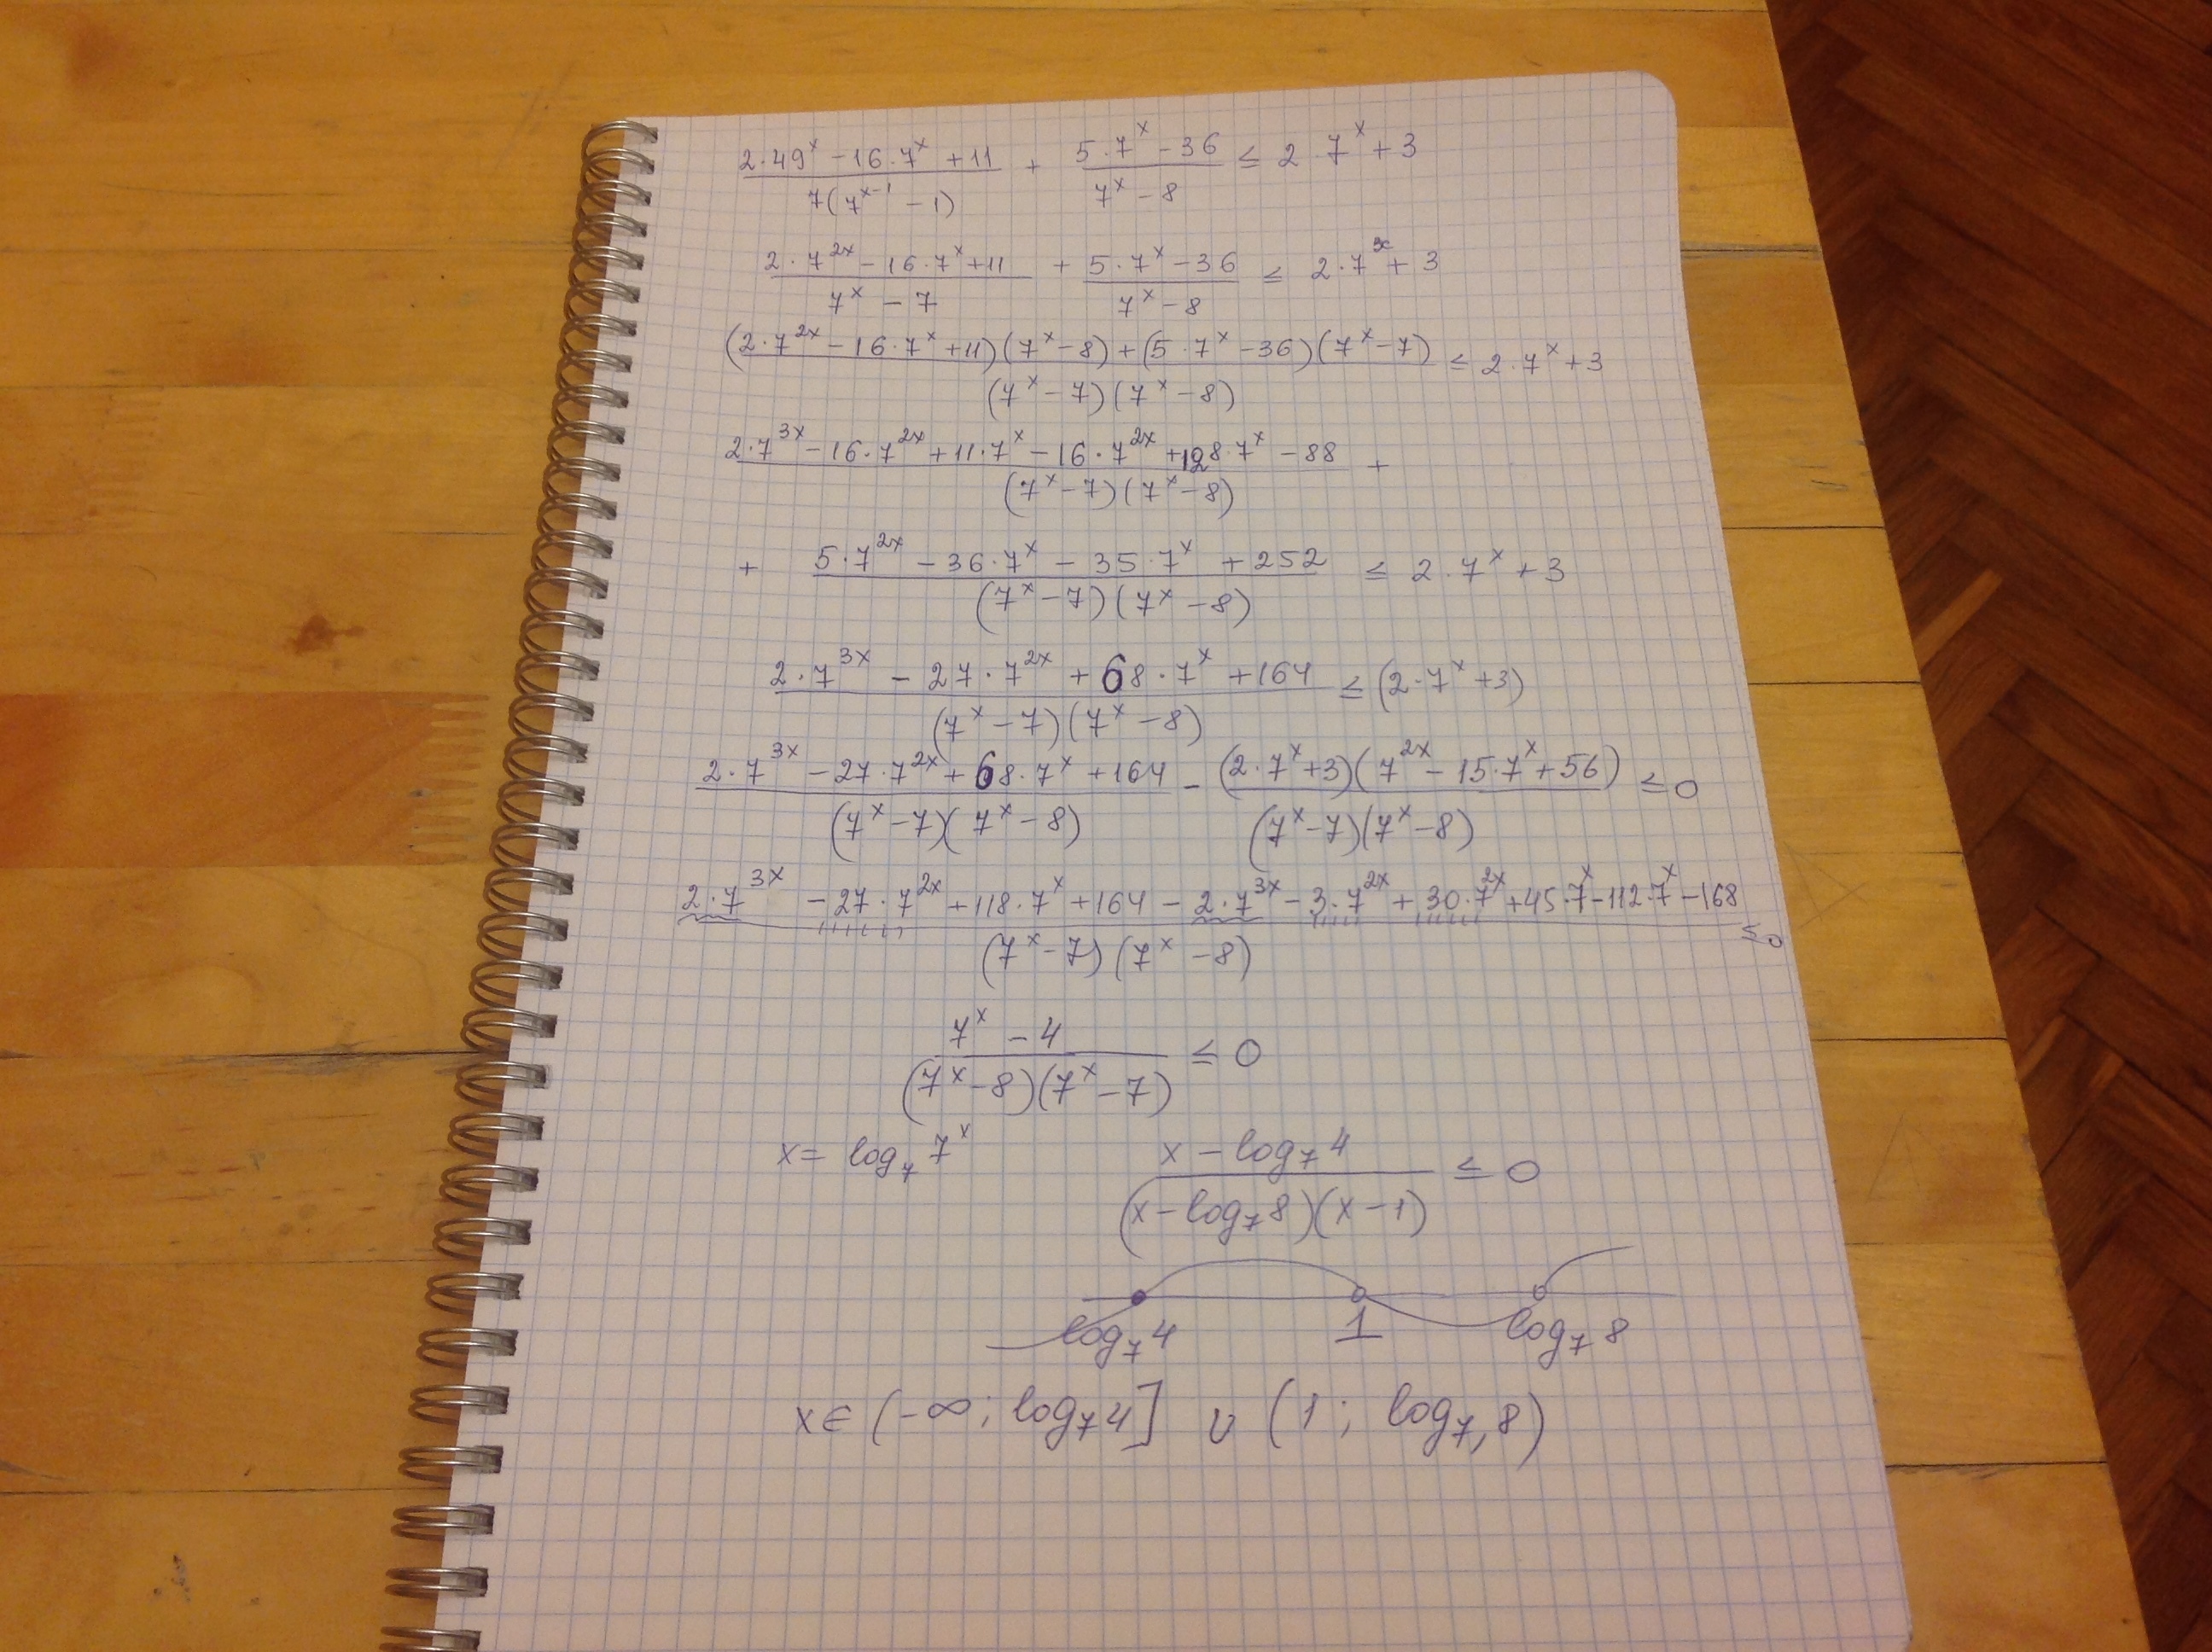 (2·49^x − 16·7^x + 11)/(7(7^(x−1) − 1)) + (5·7^x − 36)/(7^x − 8) ≤ 2·7^x + 3
(2·7^(2x) − 16·7^x + 11)/(7^x − 7) + (5·7^x − 36)/(7^x − 8) ≤ 2·7^x + 3
((2·7^(2x) − 16·7^x + 11)(7^x − 8) + (5·7^x − 36)(7^x − 7))/((7^x − 7)(7^x − 8)) ≤ 2·7^x + 3
(2·7^(3x) − 16·7^(2x) + 11·7^x − 16·7^(2x) + 128·7^x − 88)/((7^x − 7)(7^x − 8)) +
+ (5·7^(2x) − 36·7^x − 35·7^x + 252)/((7^x − 7)(7^x − 8)) ≤ 2·7^x + 3
(2·7^(3x) − 27·7^(2x) + 68·7^x + 164)/((7^x − 7)(7^x − 8)) ≤ (2·7^x + 3)
(2·7^(3x) − 27·7^(2x) + 68·7^x + 164)/((7^x − 7)(7^x − 8)) − ((2·7^x + 3)(7^(2x) − 15·7^x + 56))/((7^x − 7)(7^x − 8)) ≤ 0
(2·7^(3x) − 27·7^(2x) + 118·7^x + 164 − 2·7^(3x) − 3·7^(2x) + 30·7^(2x) + 45·7^x − 112·7^x − 168)/((7^x − 7)(7^x − 8)) ≤ 0
(7^x − 4)/((7^x − 8)(7^x − 7)) ≤ 0
x = log_7 7^x (x − log_7 4)/((x − log_7 8)(x − 1)) ≤ 0
log_7 4 1 log_7 8
x ∈ (−∞; log_7 4] ∪ (1; log_7, 8)